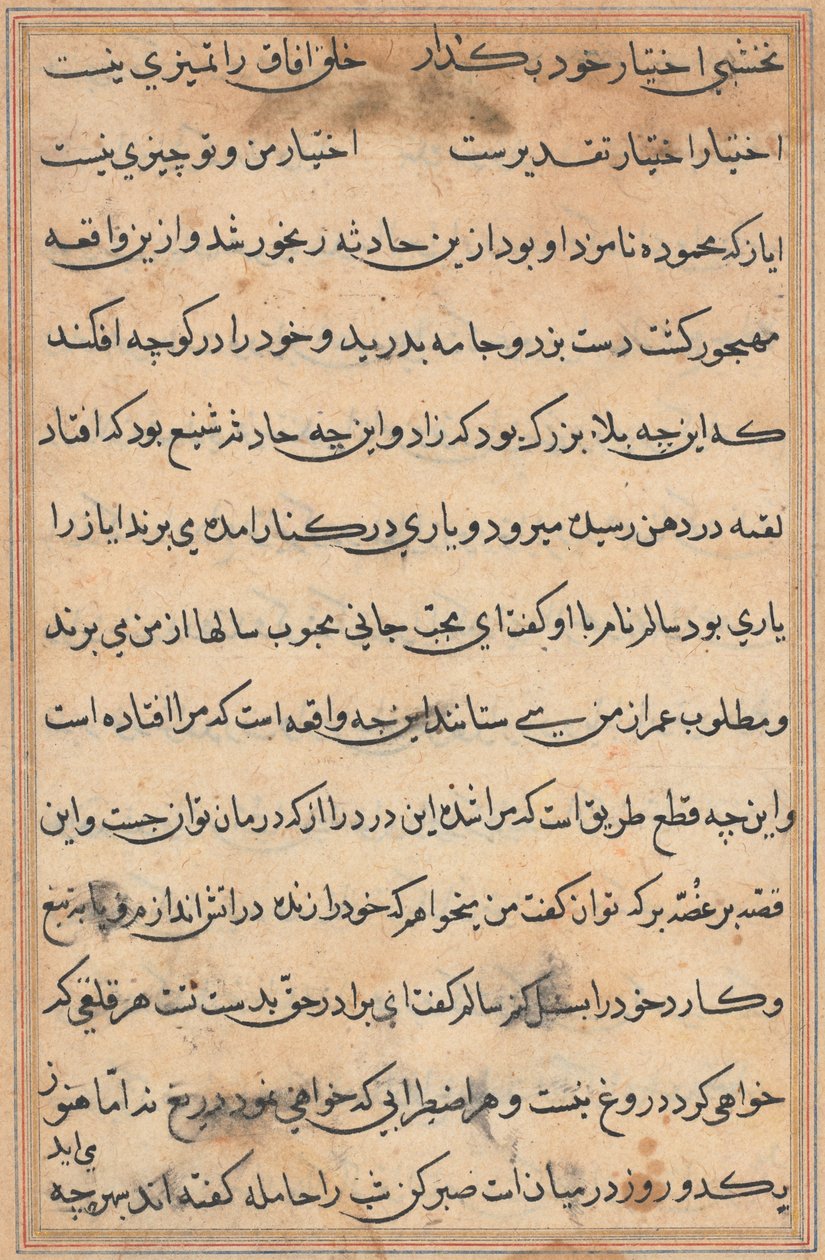 نخشبي اختيار خود بكذار خلق افاق را تميزي نيست
اختيار اختيار تقديرست اختيار من و تو چيزي نيست
اياز كه محموده نامزد او بود ازين حادثه رنجور شد و ازين واقعه
مهجور كشت دست بزد و جامه بدريد و خود را در كوچه افكند
كه اين چه بلاء بزرك بود كه زاد و اين چه حادثه شنيع بود كه افتاد
لقمه در دهن رسيده ميرود و ياري در كنار امده مي برند اياز را
ياري بود سالم نام با او كفت اي محبّ جاني محبوب سالها از من مي برند
و مطلوب عمر از من مي ستانند اين چه واقعه است كه مرا افتاده است
و اين چه قطع طريق است كه مرا شده اين درد را از كه درمان توان جست و اين
قصّه بر غُصّه بر كه توان كفت من ميخواهم كه خود را زنده در اتش اندازم و يا به تيغ
و كارد خود را بسمل كنم سالم كفت اي برادر حقّ بدست تست هر قلقي كه
خواهي كرد دروغ نيست و هر اضطرابي كه خواهي نمود دريغ نه امّا هنوز
يكدو روز در ميان است صبر كن شب را حامله كفته اند بهر چه
مي ايد